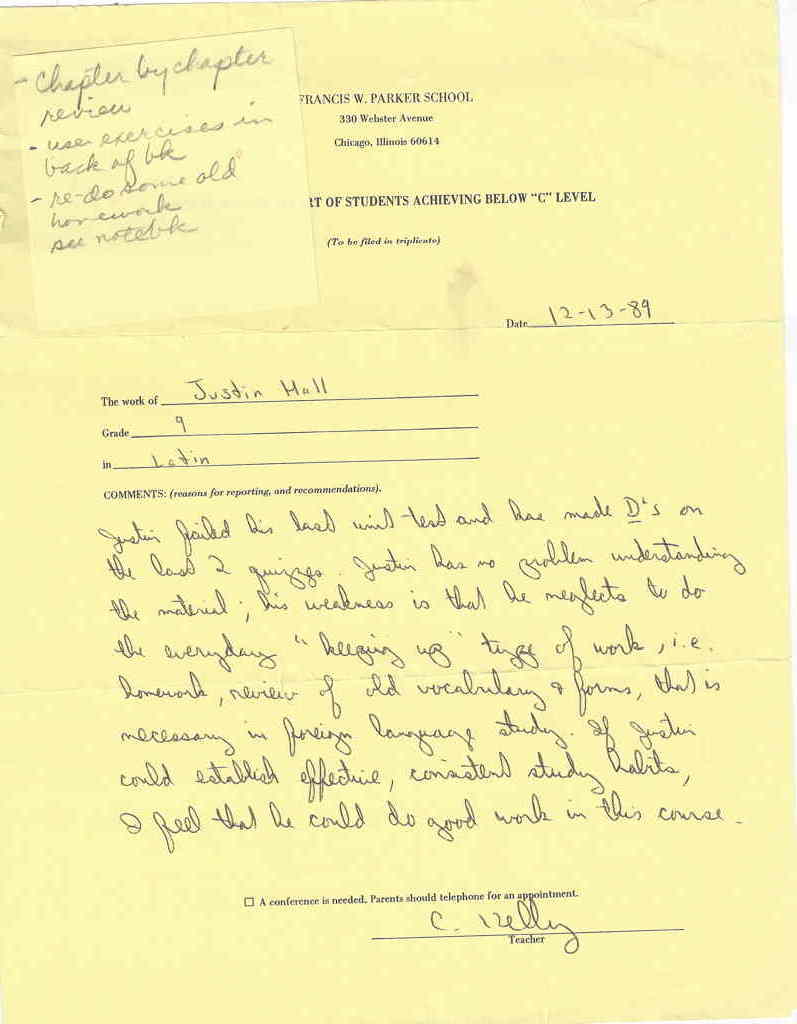 - Chapter by chapter
review
- use exercises in
back of bk
- re-do some old
homework
see notebk
FRANCIS W. PARKER SCHOOL
330 Webster Avenue
Chicago, Illinois 60614
RT OF STUDENTS ACHIEVING BELOW "C" LEVEL
(To be filed in triplicate)
Date 12-13-89
The work of Justin Hall
Grade 9
in Latin
COMMENTS: (reasons for reporting, and recommendations).
Justin failed his last unit test and has made D's on
the last 2 quizzes. Justin has no problem understanding
the material; his weakness is that he neglects to do
the everyday "keeping up" type of work, i.e.
homework, review of old vocabulary & forms, that is
necessary in foreign language study. If Justin
could establish effective, consistent study habits,
I feel that he could do good work in this course.
☐ A conference is needed. Parents should telephone for an appointment.
C. Kelly
Teacher